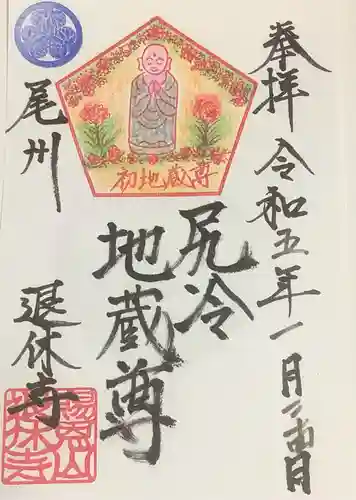 奉拝 令和五年一月二十四日
初地蔵尊
尻冷
地蔵尊
尾州 退休寺